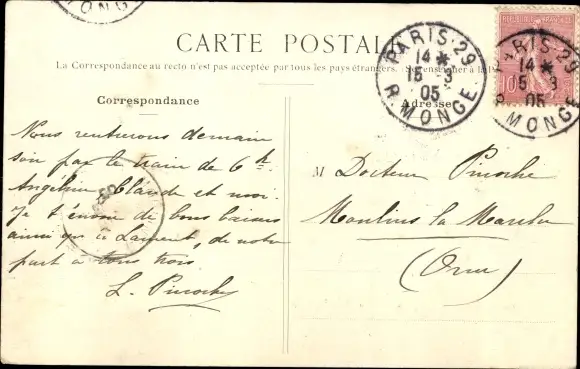 MONG
CARTE POSTAL
La Correspondance au recto n'est pas acceptée par tous les pays étrangers. Se renseigner à la
Correspondance
Adresse
PARIS·29
14 *
15 3
05
R. MONGE
RÉPUBLIQUE FRANÇAISE
10
PARIS·29
14 *
5 3
05
MONGE
Nous rentrerons demain
soir par le train de 6 h.
Angélina Claude et moi.
Je t'envoie de bons baisers
ainsi qu'à Laurent, de notre
part à tous trois
L. Pinoche
M Docteur Pinoche
Moulins la Marche
(Orne)